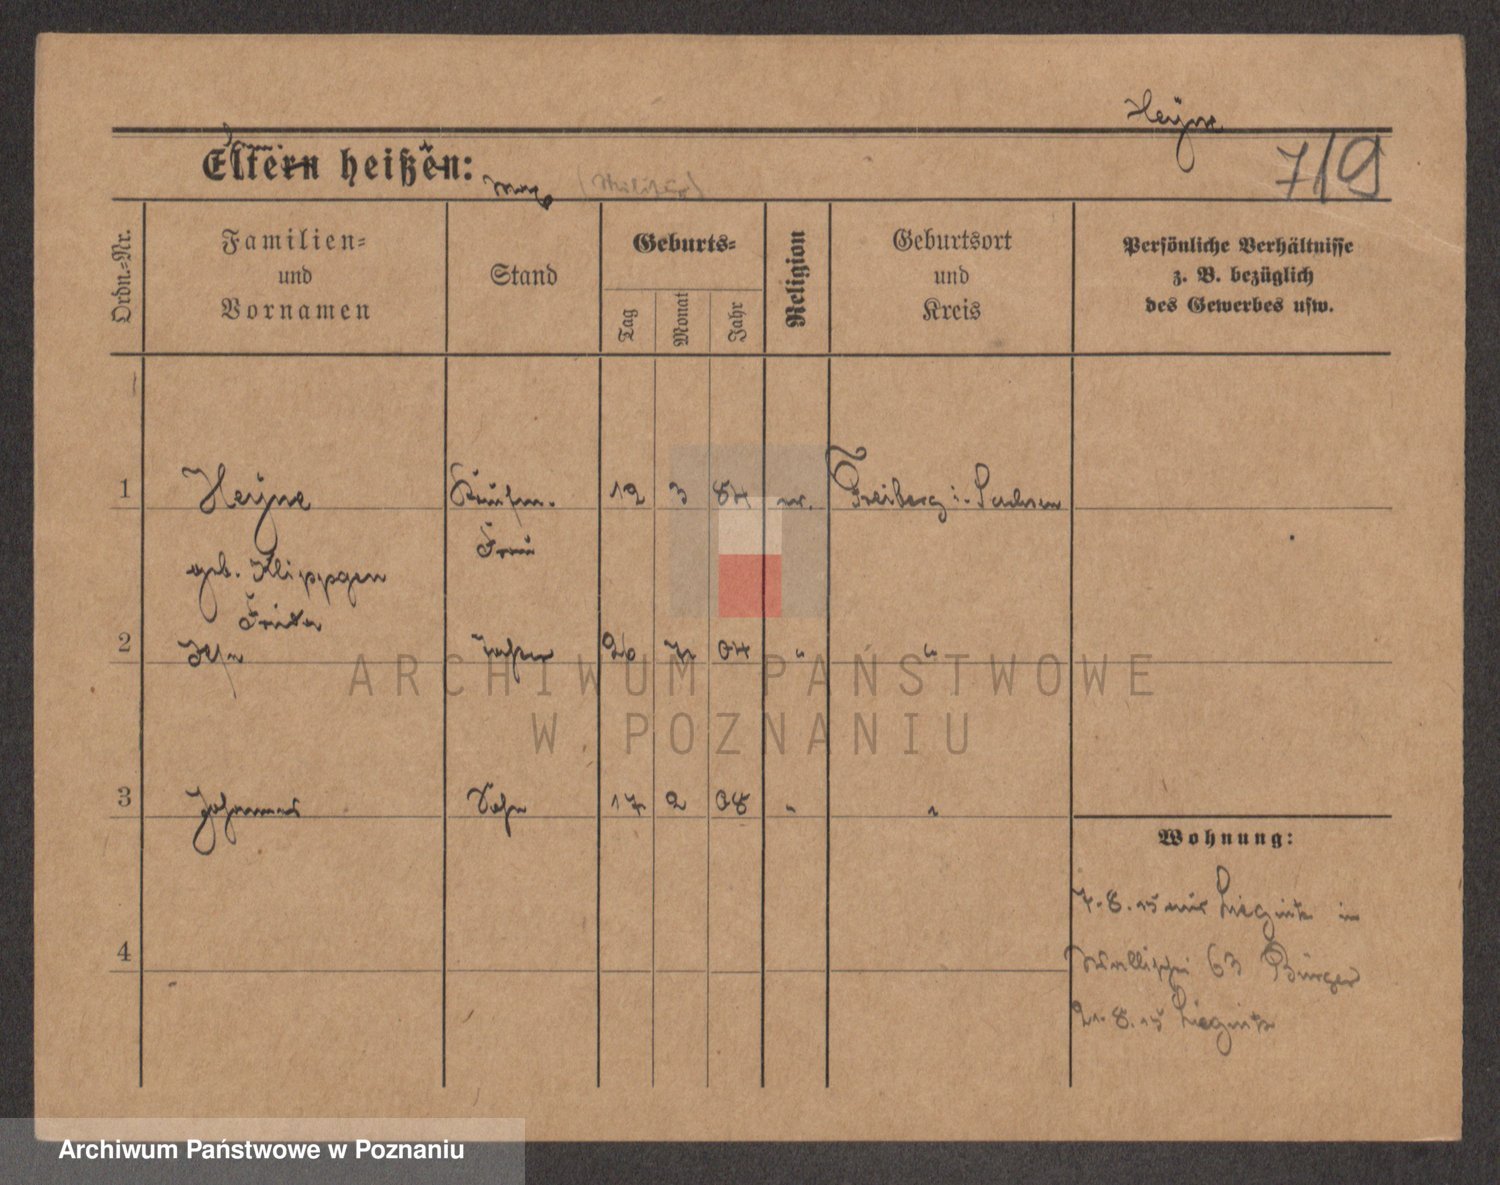 Heyne
Eltern heißen:
7/9
Ordn.-Nr.
Familien-
und
Vornamen
Stand
Geburts-
Tag
Monat
Jahr
Religion
Geburtsort
und
Kreis
Persönliche Verhältnisse
z. B. bezüglich
des Gewerbes usw.
1 Heyne Kaufm. 12 3 84 ev. Freiberg i. Sachsen
Frau
geb. Klippgen
Frieda
2 Ilse Tochter 20 04 " "
3 Johannes Sohn 17 2 08 " "
Wohnung:
7.8.15 aus Liegnitz in
Wallischei 63 Bürger
4
21.8.15 Liegnitz
ARCHIWUM PAŃSTWOWE
W POZNANIU
Archiwum Państwowe w Poznaniu